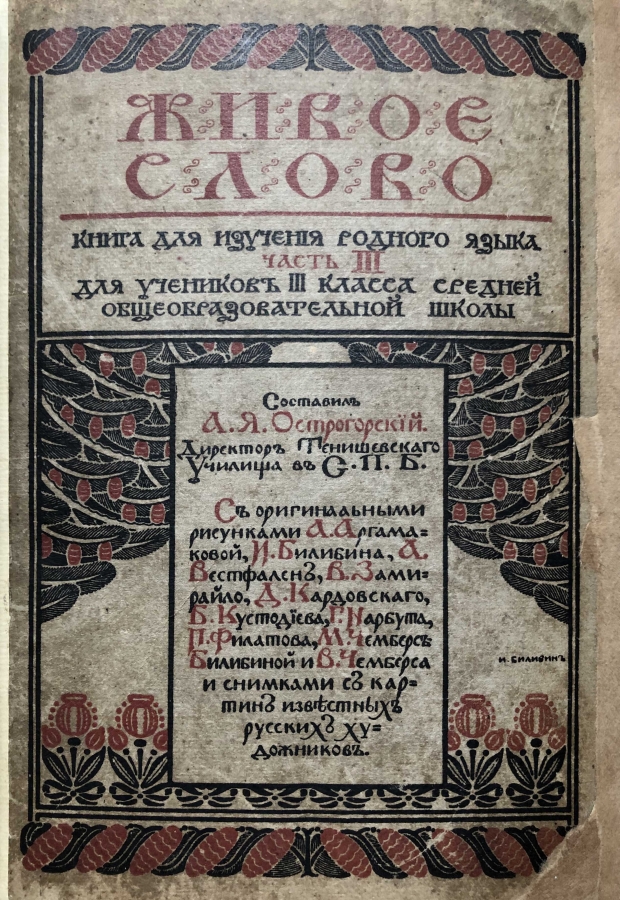 ЖИВОЕ
СЛОВО
КНИГА ДЛЯ ИЗУЧЕНІЯ РОДНОГО ЯЗЫКА
ЧАСТЬ III
ДЛЯ УЧЕНИКОВЪ III КЛАССА СРЕДНЕЙ
ОБЩЕОБРАЗОВАТЕЛЬНОЙ ШКОЛЫ
Составилъ
А. Я. Острогорскій.
Директоръ Тенишевскаго
Училища въ С. П. Б.
Съ оригинальными
рисунками А. Аргама=
ковой, И. Билибина, А.
Вестфаленъ, В. Зами=
райло, Д. Кардовскаго,
Б. Кустодіева, Г. Нарбута,
П. Филатова, М. Чемберсъ
Билибиной и В. Чемберса
и снимками съ кар=
тинъ извѣстныхъ
русскихъ ху=
дожниковъ.
И. БИЛИБИНЪ